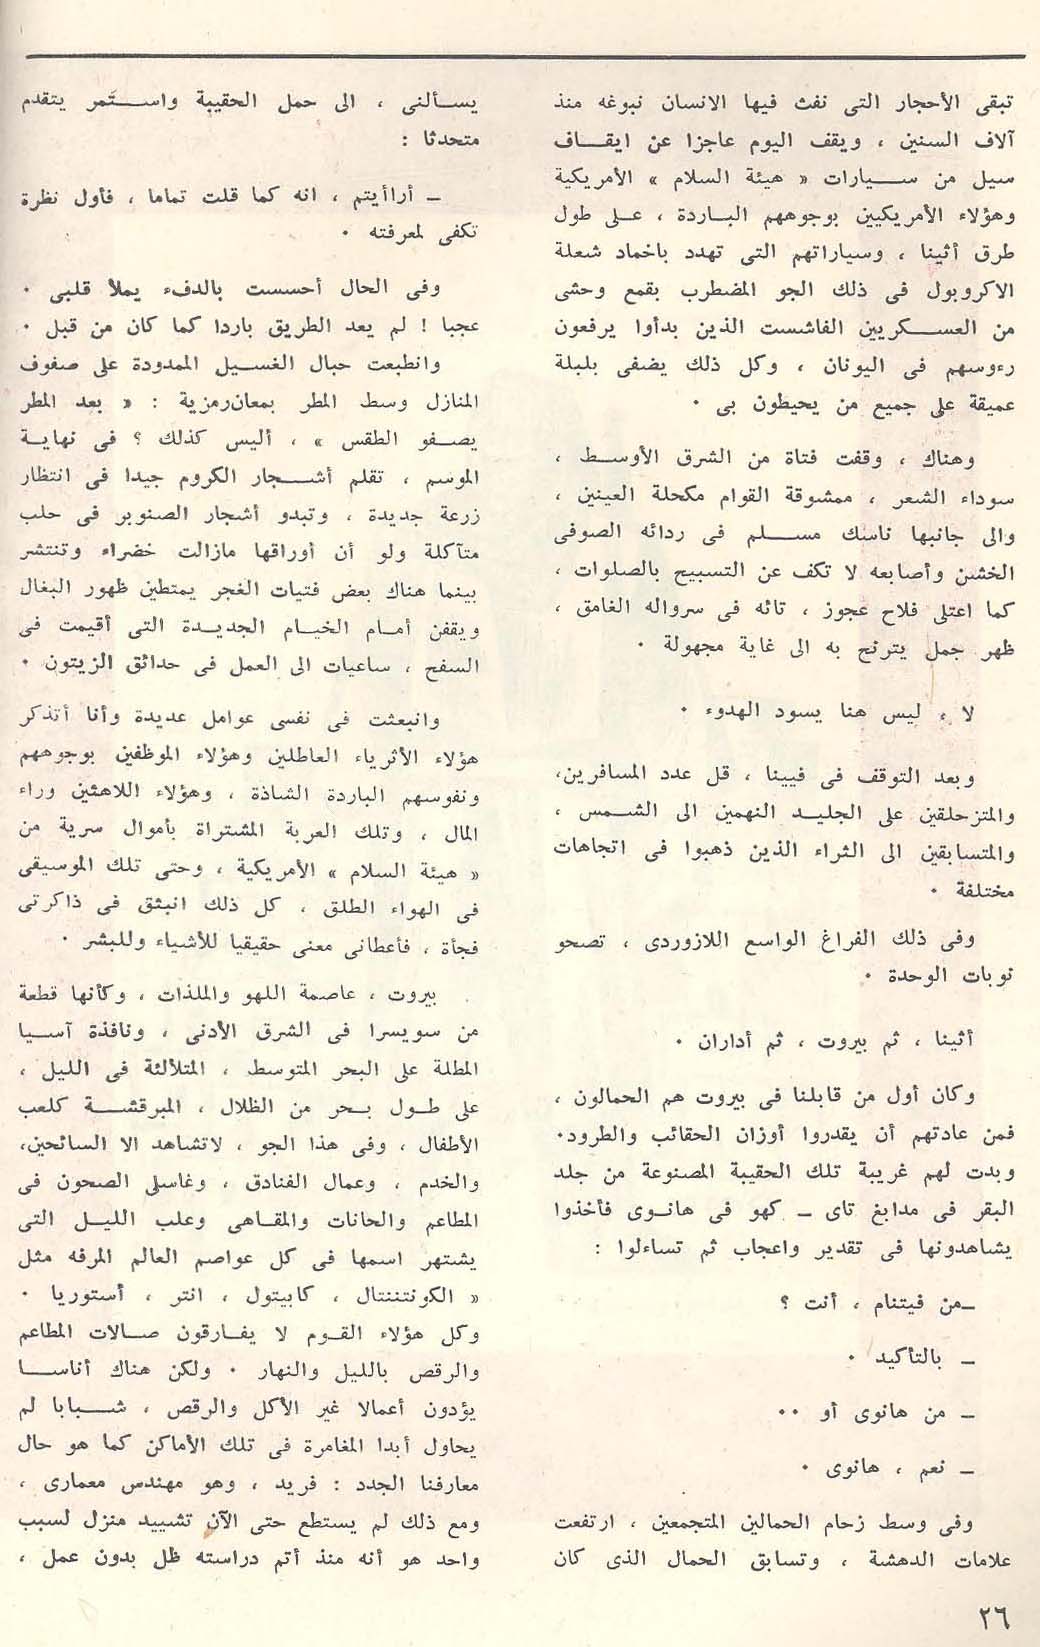 تبقى الأحجار التى نفث فيها الانسان نبوغه منذ
آلاف السنين ، ويقف اليوم عاجزا عن ايقاف
سيل من سيارات « هيئة السلام » الأمريكية
وهؤلاء الأمريكيين بوجوههم الباردة ، على طول
طرق أثينا ، وسياراتهم التى تهدد باخماد شعلة
الاكروبول فى ذلك الجو المضطرب بقمع وحشى
من العسكريين الفاشست الذين بدأوا يرفعون
رءوسهم فى اليونان ، وكل ذلك يضفى بلبلة
عميقة على جميع من يحيطون بى ٠
وهناك ، وقفت فتاة من الشرق الأوسط ،
سوداء الشعر ، ممشوقة القوام مكحلة العينين ،
والى جانبها ناسك مسلم فى ردائه الصوفى
الخشن وأصابعه لا تكف عن التسبيح بالصلوات ،
كما اعتلى فلاح عجوز ، تائه فى سرواله الغامق ،
ظهر جمل يترنح به الى غاية مجهولة ٠
لا ، ليس هنا يسود الهدوء ٠
وبعد التوقف فى فيينا ، قل عدد المسافرين،
والمتزحلقين على الجليد النهمين الى الشمس ،
والمتسابقين الى الثراء الذين ذهبوا فى اتجاهات
مختلفة ٠
وفى ذلك الفراغ الواسع اللازوردى ، تصحو
نوبات الوحدة ٠
أثينا ، ثم بيروت ، ثم أداران ٠
وكان أول من قابلنا فى بيروت هم الحمالون ،
فمن عادتهم أن يقدروا أوزان الحقائب والطرود٠
وبدت لهم غريبة تلك الحقيبة المصنوعة من جلد
البقر فى مدابغ تاى ـ كهو فى هانوى فأخذوا
يشاهدونها فى تقدير واعجاب ثم تساءلوا :
ـ من فيتنام ، أنت ؟
ـ بالتأكيد ٠
ـ من هانوى أو ٠٠
ـ نعم ، هانوى ٠
وفى وسط زحام الحمالين المتجمعين ، ارتفعت
علامات الدهشة ، وتسابق الحمال الذى كان
يسألنى ، الى حمل الحقيبة واستمر يتقدم
متحدثا :
ـ أراأيتم ، انه كما قلت تماما ، فأول نظرة
تكفى لمعرفته ٠
وفى الحال أحسست بالدفء يملأ قلبى ٠
عجبا ! لم يعد الطريق باردا كما كان من قبل ٠
وانطبعت حبال الغسيل الممدودة على صفوف
المنازل وسط المطر بمعان رمزية : « بعد المطر
يصفو الطقس » ، أليس كذلك ؟ فى نهاية
الموسم ، تقلم أشجار الكروم جيدا فى انتظار
زرعة جديدة ، وتبدو أشجار الصنوبر فى حلب
متآكلة ولو أن أوراقها مازالت خضراء وتنتشر
بينما هناك بعض فتيات الغجر يمتطين ظهور البغال
ويقفن أمام الخيام الجديدة التى أقيمت فى
السفح ، ساعيات الى العمل فى حدائق الزيتون ٠
وانبعثت فى نفسى عوامل عديدة وأنا أتذكر
هؤلاء الأثرياء العاطلين وهؤلاء الموظفين بوجوههم
ونفوسهم الباردة الشاذة ، وهؤلاء اللاهثين وراء
المال ، وتلك العربة المشتراة بأموال سرية من
« هيئة السلام » الأمريكية ، وحتى تلك الموسيقى
فى الهواء الطلق ، كل ذلك انبثق فى ذاكرتى
فجأة ، فأعطانى معنى حقيقيا للأشياء وللبشر ٠
بيروت ، عاصمة اللهو والملذات ، وكأنها قطعة
من سويسرا فى الشرق الأدنى ، ونافذة آسيا
المطلة على البحر المتوسط ، المتلألئة فى الليل ،
على طول بحر من الظلال ، المبرقشة كلعب
الأطفال ، وفى هذا الجو ، لاتشاهد الا السائحين،
والخدم ، وعمال الفنادق ، وغاسلى الصحون فى
المطاعم والحانات والمقاهى وعلب الليل التى
يشتهر اسمها فى كل عواصم العالم المرفه مثل
« الكونتننتال ، كابيتول ، انتر ، أستوريا ٠
وكل هؤلاء القوم لا يفارقون صالات المطاعم
والرقص بالليل والنهار ٠ ولكن هناك أناسا
يؤدون أعمالا غير الأكل والرقص ، شبابا لم
يحاول أبدا المغامرة فى تلك الأماكن كما هو حال
معارفنا الجدد : فريد ، وهو مهندس معمارى ،
ومع ذلك لم يستطع حتى الآن تشييد منزل لسبب
واحد هو أنه منذ أتم دراسته ظل بدون عمل ،
٢٦